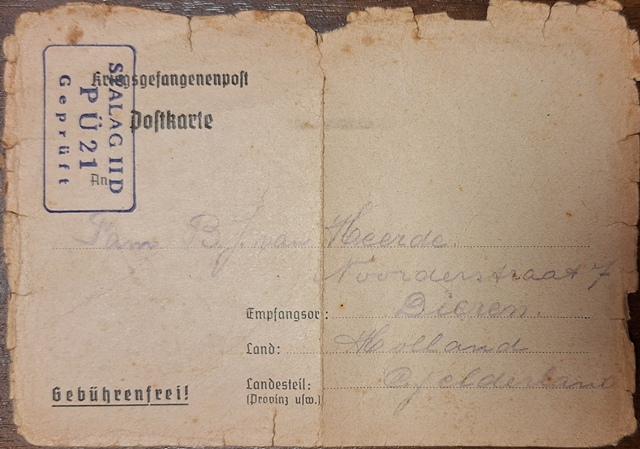 Kriegsgefangenenpost
Postkarte
STALAG II D
PÜ 21
Geprüft
An
Fam B.J. van Heerde.
Noorderstraat 7
Empfangsort: Dieren.
Land: Holland
Landesteil: Gelderland
(Provinz usw.)
Gebührenfrei!